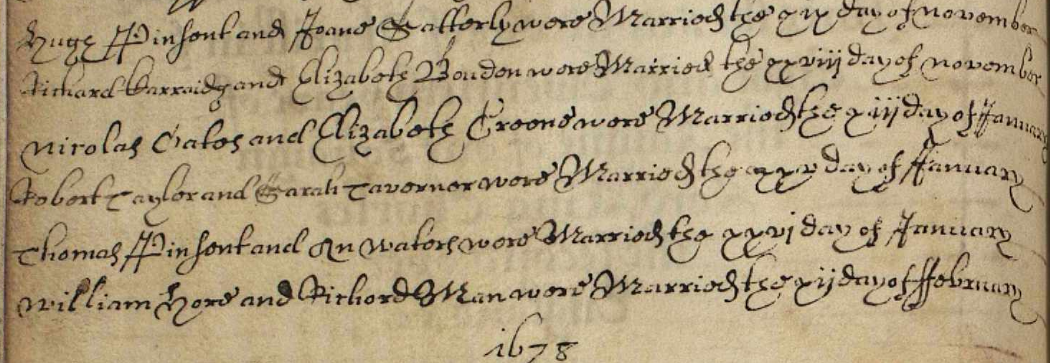 Hugh Pinsent and Joane Satterly were Married the xix day of november
Richard Karraidg and Elizabeth Bouden were Married the xxviij day of november
nicolas Oates and Elizabeth Greene were Married the xiij day of January
Robert Taylor and Sarah Taverner were Married the xxv day of January
Thomas Pinsent and An waters were Married the xxvj day of January
william Hore and Richord Man were Married the xij day of ffebruary
1678